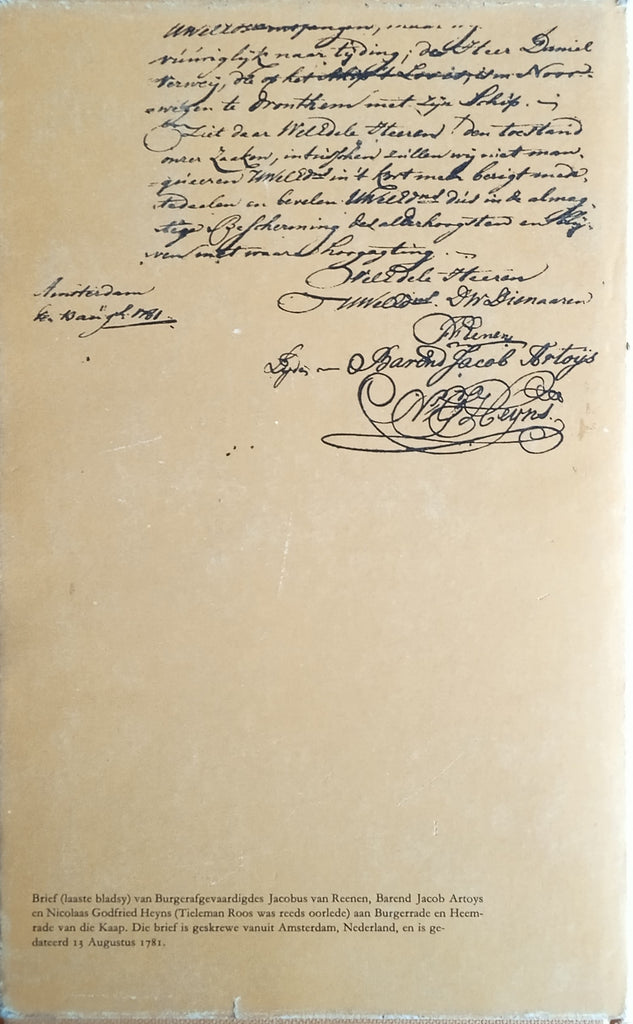 vúúriglijk naar tijding; de Heer Daniel
Verweij, die op het Schip Lovis, is in Noor-
wegen te Dronthem met zijn Schip. —
Ziet daar WelEdele Heeren! den toestand
onser Zaaken, intússchen zúllen wij niet man-
qúeeren UWelEds in 't kort meer berigt mede-
tedeelen en bevelen UWelEds dús in de almag-
tige Bescherming des allerhoogsten en blij-
ven met waare hoogagting. —
WelEdele Heeren
UWelEds. DWDienaaren
Amsterdam
13 aúgt. 1781.
Reenen
Barend Jacob Artoijs
Heyns.
Brief (laaste bladsy) van Burgerafgevaardigdes Jacobus van Reenen, Barend Jacob Artoys
en Nicolaas Godfried Heyns (Tieleman Roos was reeds oorlede) aan Burgerrade en Heem-
rade van die Kaap. Die brief is geskrewe vanuit Amsterdam, Nederland, en is ge-
dateerd 13 Augustus 1781.